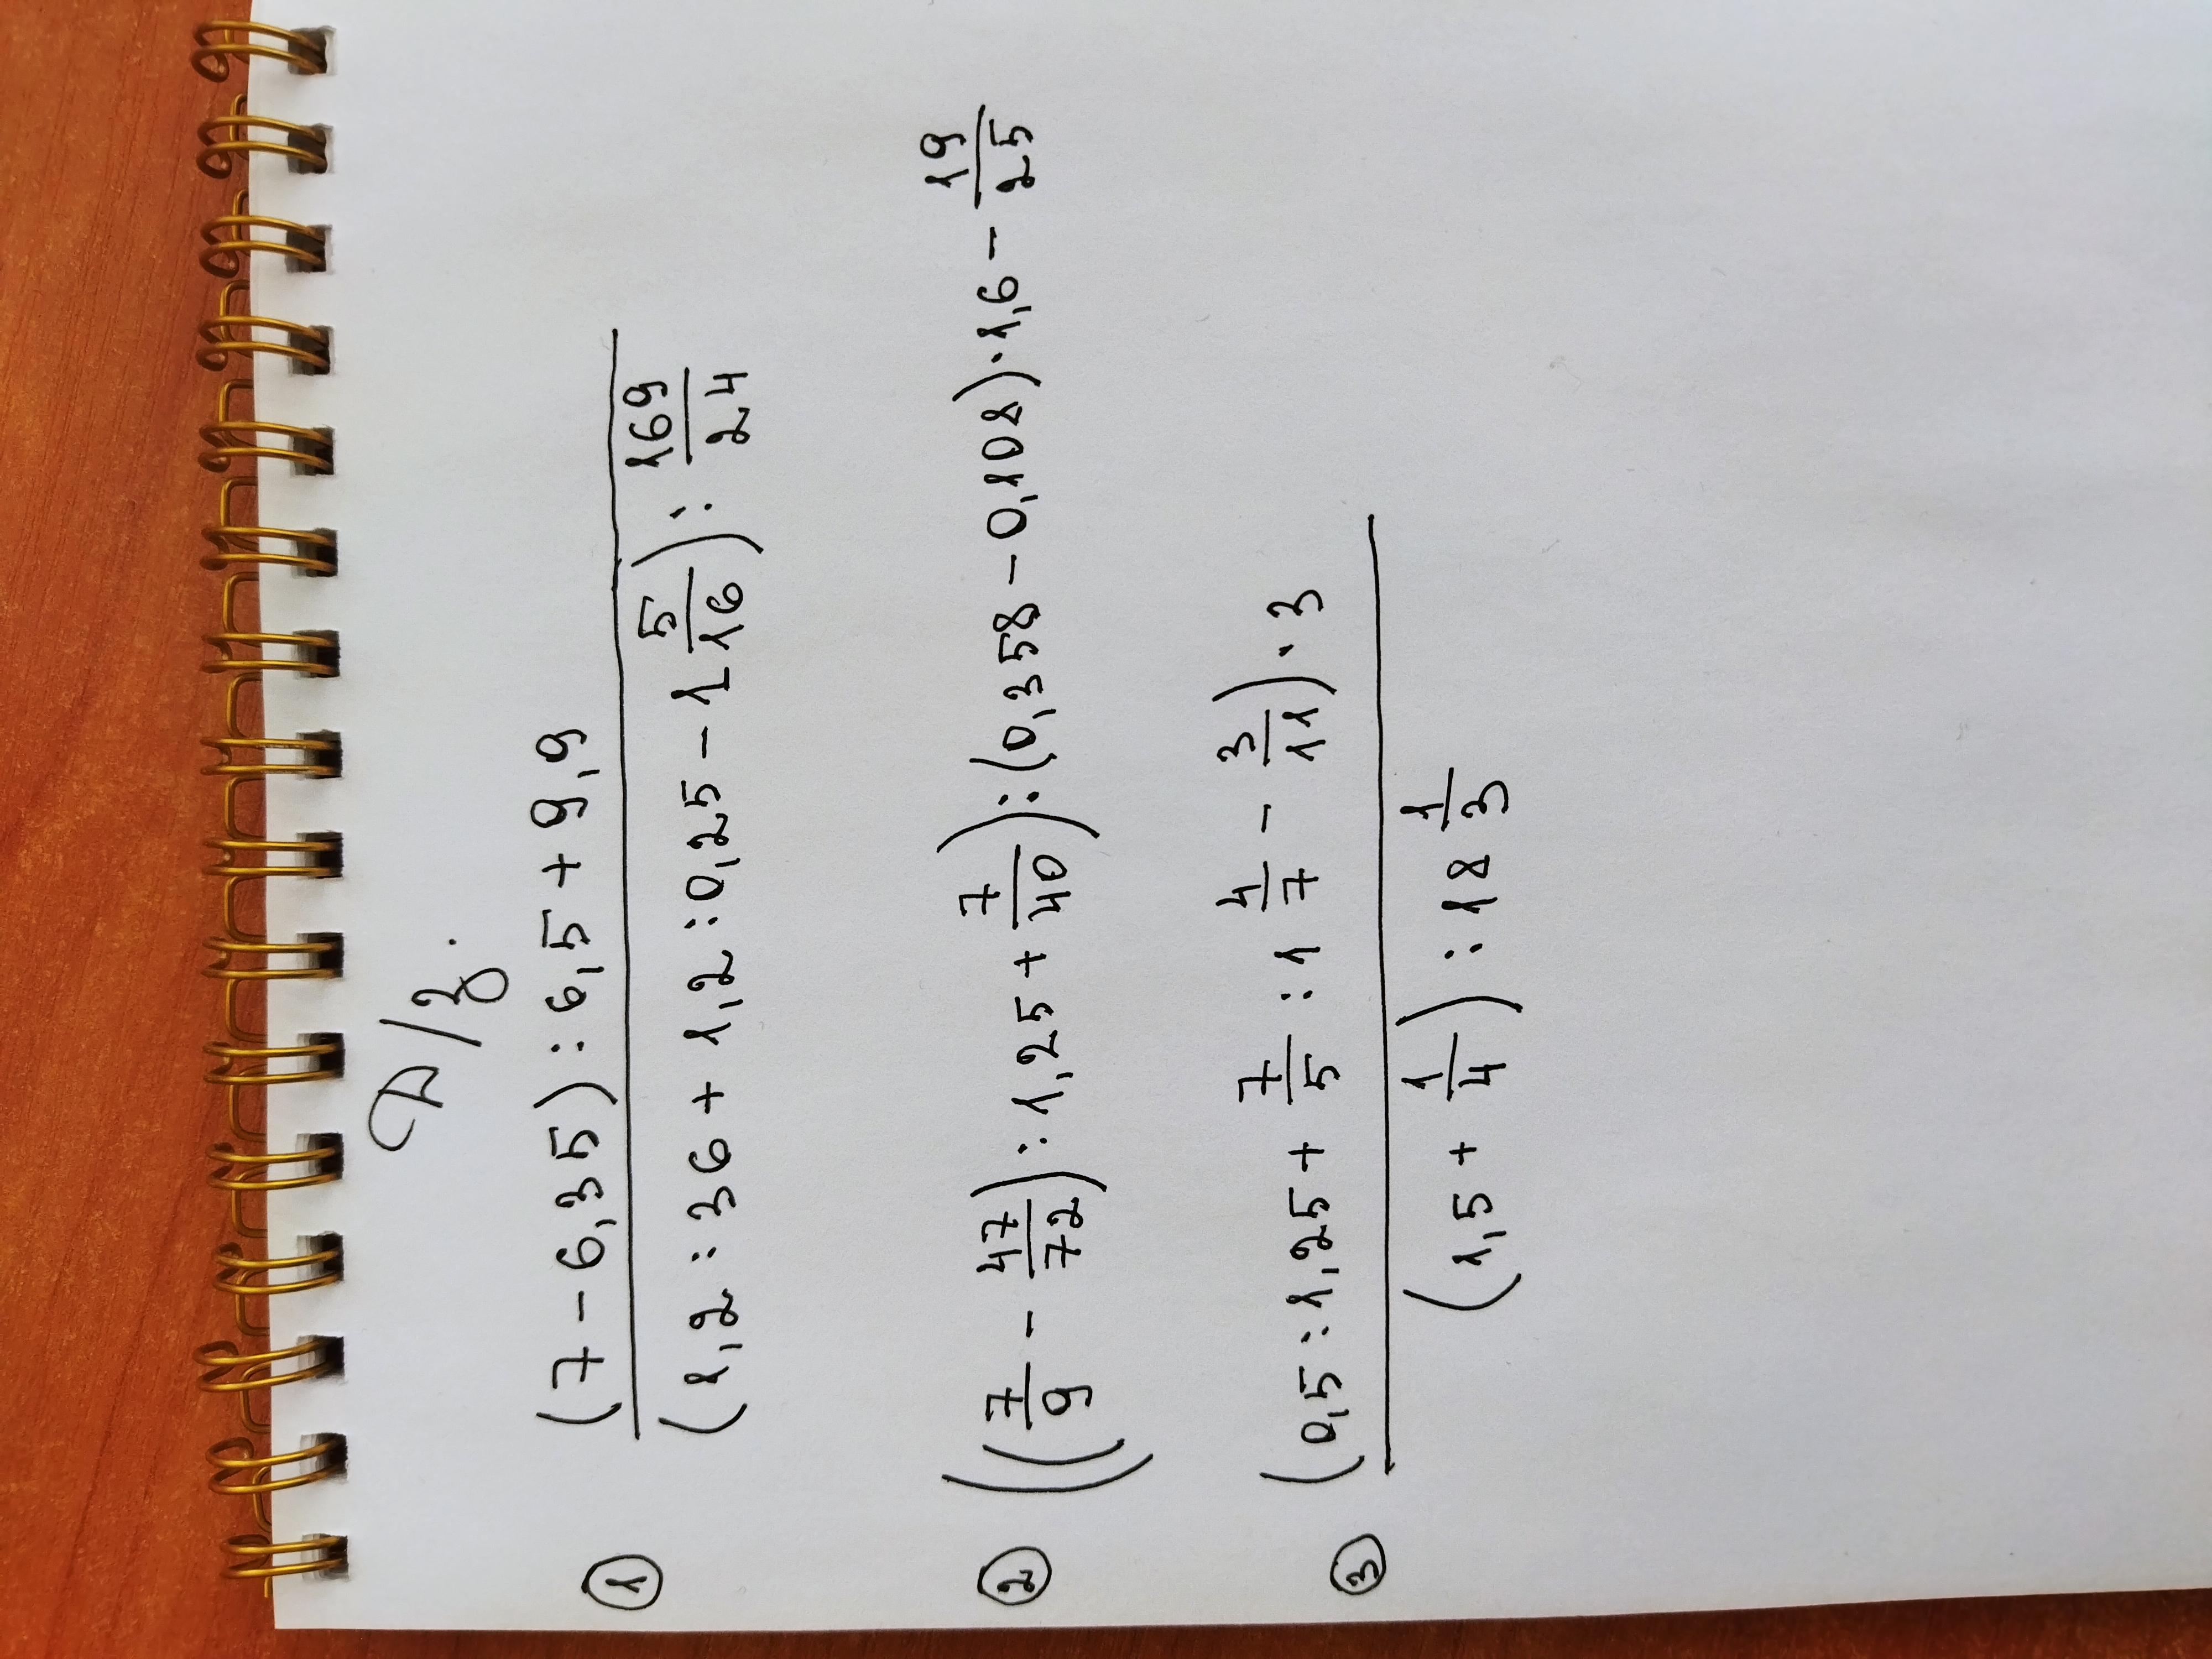 Д/з.
① (7 − 6,35) : 6,5 + 9,9
(1,2 : 36 + 1,2 : 0,25 − 1 5/16) : 169/24
② ((7/9 − 47/72) : 1,25 + 7/40) : (0,358 − 0,108) · 1,6 − 19/25
③ (0,5 : 1,25 + 7/5 : 1 4/7 − 3/11) · 3
(1,5 + 1/4) : 18 1/3